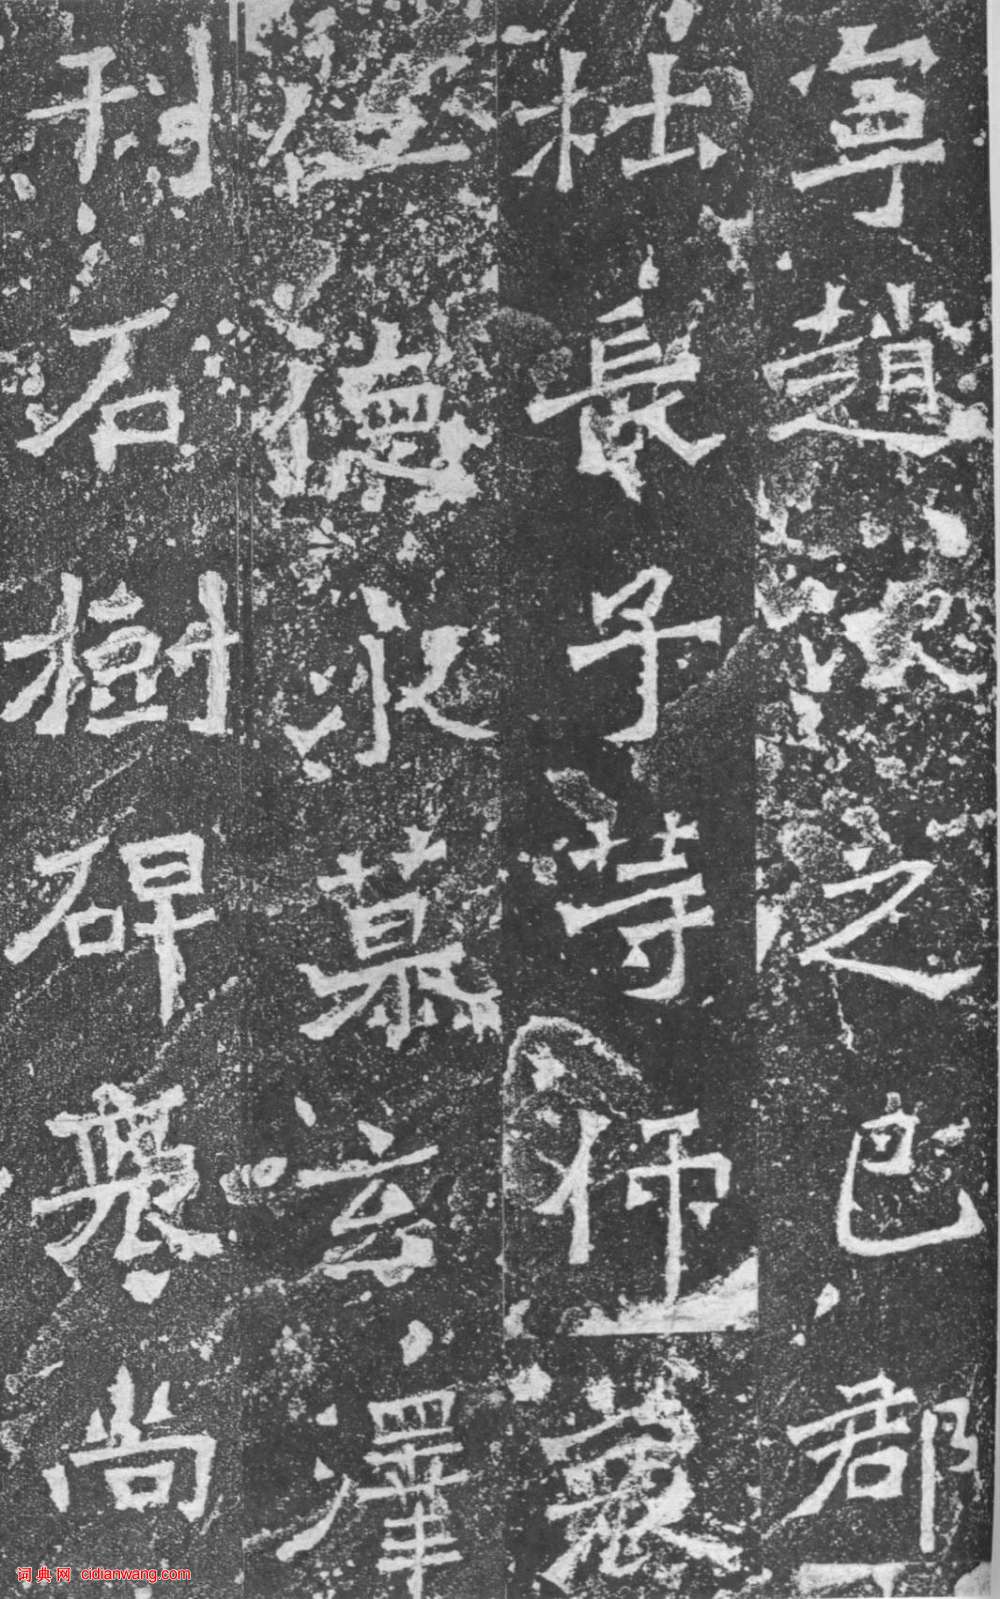 寧趙次之巴郡
杜長子等仰哀
仁德永慕玄澤
刊石樹碑褒尚
词典网 cidianwang.com